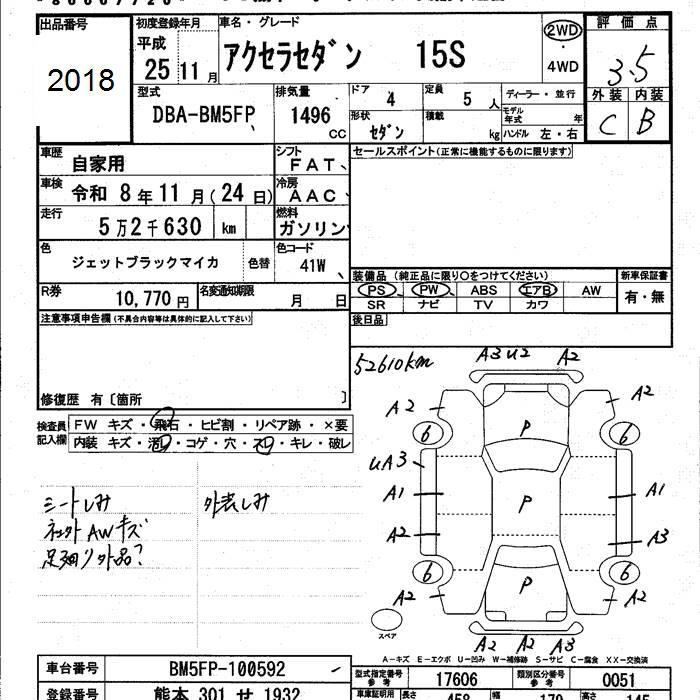 出品番号 初度登録年月 車名・グレード 評価点
2018 平成 25 11月 アクセラセダン 15S 2WD 4WD 3.5
型式 排気量 ドア 定員 ディーラー・並行 外装 内装
DBA-BM5FP 1496 CC 4 5人 モデル年式 年 C B
形状 セダン 積載 kg ハンドル 左・右
車歴 自家用 シフト FAT セールスポイント(正常に機能するものに限ります)
車検 令和 8年11月(24日) 冷房 AAC
走行 5万2千630 km 燃料 ガソリン
色 ジェットブラックマイカ 色替 色コード 41W
装備品 (純正品に限り○をつけてください) 新車保証書
PS PW ABS エアB AW 有・無
SR ナビ TV カワ
R券 10,770円 名変通知期限 月 日
後日品
注意事項申告欄(不具合内容等は具体的に記入して下さい)
52610km
A3 U2 A2
修復歴 有〔箇所 〕
検査員記入欄 FW キズ・飛石・ヒビ割・リペア跡・×要
内装 キズ・汚レ・コゲ・穴・スレ・キレ・破レ
A2 A2
6 P 6
UA3
A1 P A1
A2 A3
6 6
A2 P A2
A2 A2 A3
シートしみ 外表しみ
AWキズ
スペア
A-キズ E-エクボ U-凹み W-補修跡 S-サビ C-腐食 XX-交換済
車台番号 BM5FP-100592
型式指定番号 参考 17606 類別区分番号 参考 0051
登録番号 熊本 301 せ 1932
車庫証明用 長さ 458 幅 179 高さ 145